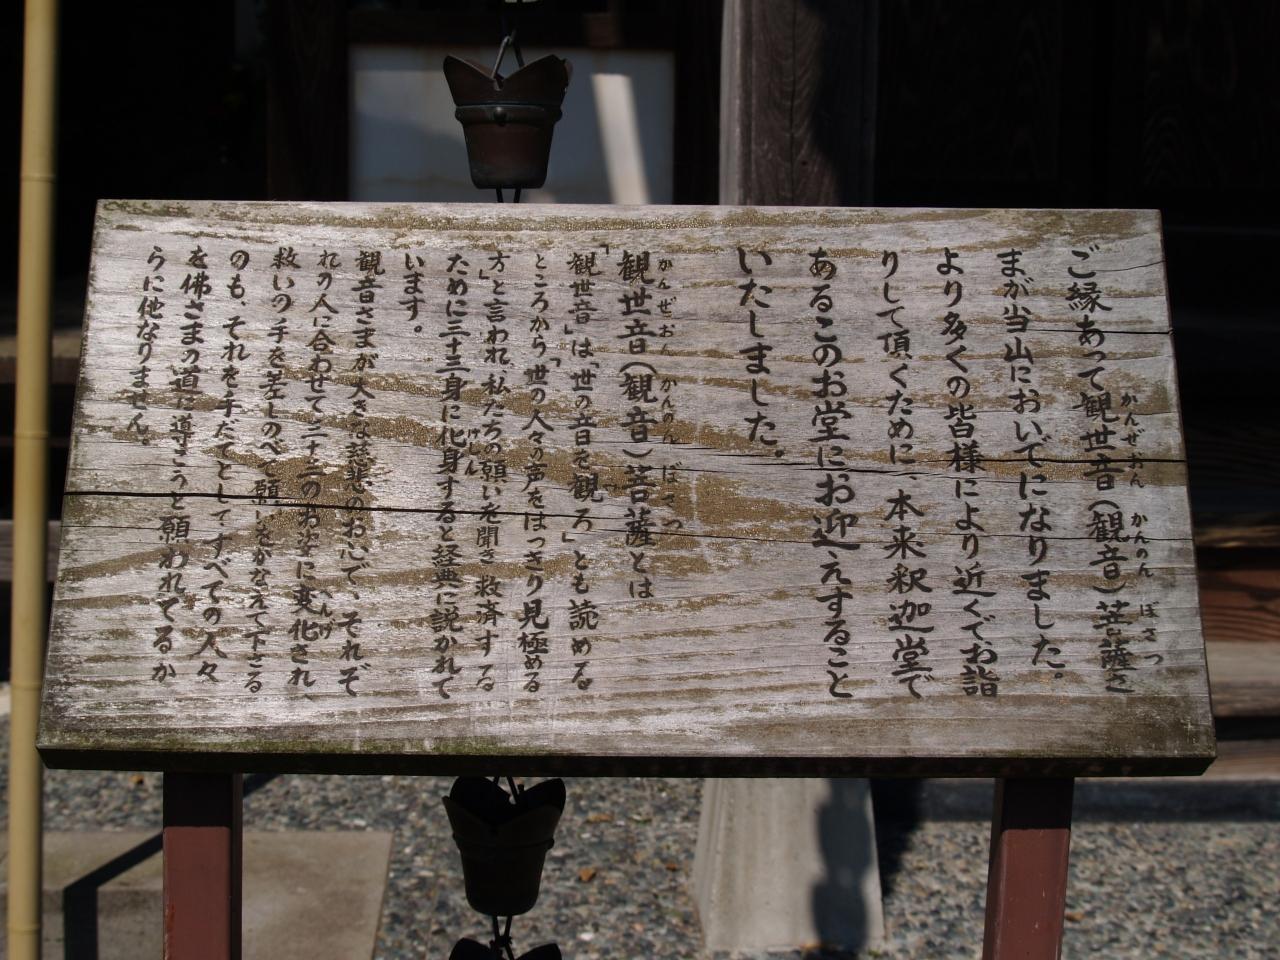 ご縁あって観世音(観音)菩薩さ
まが当山においでになりました。
より多くの皆様により近くでお詣
りして頂くために、本来釈迦堂で
あるこのお堂にお迎えすること
いたしました。
観世音(観音)菩薩とは
「観世音」は「世の音を観る」とも読める
ところから「世の人々の声をはっきり見極める
方」と言われ、私たちの願いを聞き救済する
ために三十三身に化身すると経典に説かれて
います。
観音さまが大きな慈悲のお心で、それぞ
れの人に合わせて三十三のお姿に変化され
救いの手を差しのべて願いをかなえて下さる
のも、それを手だてとしてすべての人々
を佛さまの道に導こうと願われてるか
らに他なりません。
かんぜおん かんのん ぼさつ
かんぜおん かんのん ぼさつ
けしん
へんげ